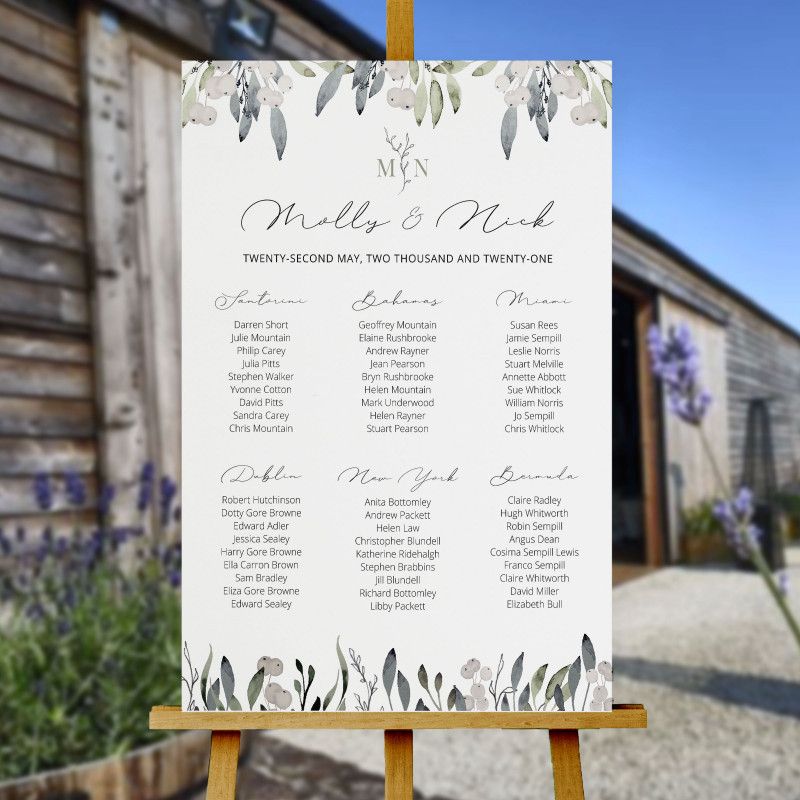 M N
Molly & Nick
TWENTY-SECOND MAY, TWO THOUSAND AND TWENTY-ONE
Santorini
Darren Short
Julie Mountain
Philip Carey
Julia Pitts
Stephen Walker
Yvonne Cotton
David Pitts
Sandra Carey
Chris Mountain
Bahamas
Geoffrey Mountain
Elaine Rushbrooke
Andrew Rayner
Jean Pearson
Bryn Rushbrooke
Helen Mountain
Mark Underwood
Helen Rayner
Stuart Pearson
Miami
Susan Rees
Jamie Sempill
Leslie Norris
Stuart Melville
Annette Abbott
Sue Whitlock
William Norris
Jo Sempill
Chris Whitlock
Dublin
Robert Hutchinson
Dotty Gore Browne
Edward Adler
Jessica Sealey
Harry Gore Browne
Ella Carron Brown
Sam Bradley
Eliza Gore Browne
Edward Sealey
New York
Anita Bottomley
Andrew Packett
Helen Law
Christopher Blundell
Katherine Ridehalgh
Stephen Brabbins
Jill Blundell
Richard Bottomley
Libby Packett
Bermuda
Claire Radley
Hugh Whitworth
Robin Sempill
Angus Dean
Cosima Sempill Lewis
Franco Sempill
Claire Whitworth
David Miller
Elizabeth Bull